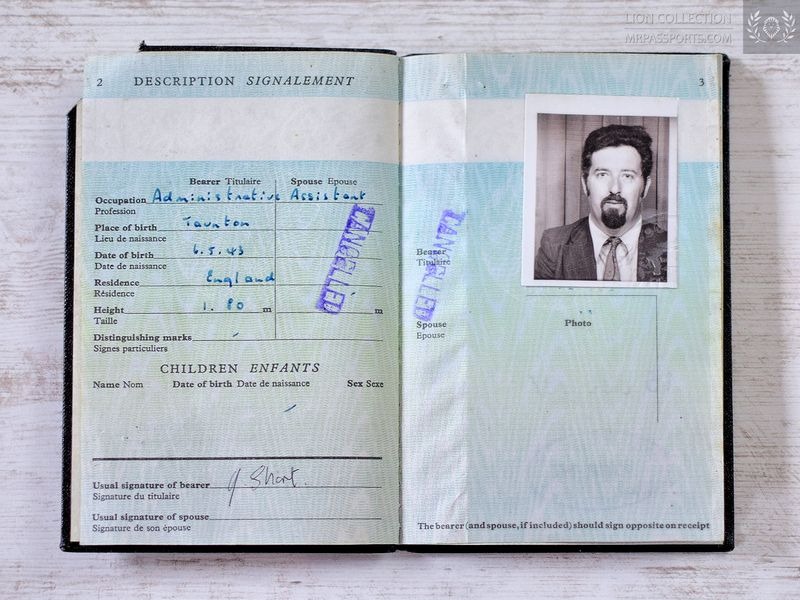 LION COLLECTION
MRPASSPORTS.COM
2 DESCRIPTION SIGNALEMENT
Bearer Titulaire Spouse Epouse
Occupation Administrative Assistant
Profession
Place of birth Taunton
Lieu de naissance
Date of birth 6.5.43
Date de naissance
Residence England
Résidence
Height 1.80 m m
Taille
Distinguishing marks
Signes particuliers
CANCELLED
CHILDREN ENFANTS
Name Nom Date of birth Date de naissance Sex Sexe
Usual signature of bearer J Short.
Signature du titulaire
Usual signature of spouse
Signature de son épouse
3
Bearer
Titulaire
CANCELLED
Spouse
Epouse
Photo
The bearer (and spouse, if included) should sign opposite on receipt